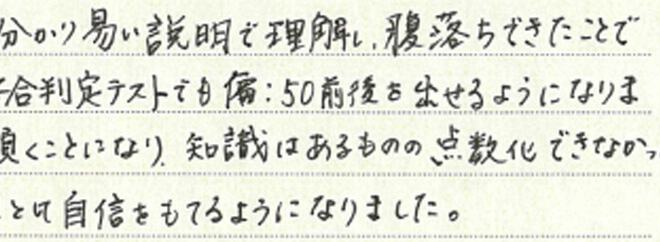 分かり易い説明で理解し、腹落ちできたことで
合判定テストでも偏:50前後を出せるようになりま
頂くことになり、知識はあるものの、点数化できなかっ
ことは自信をもてるようになりました。